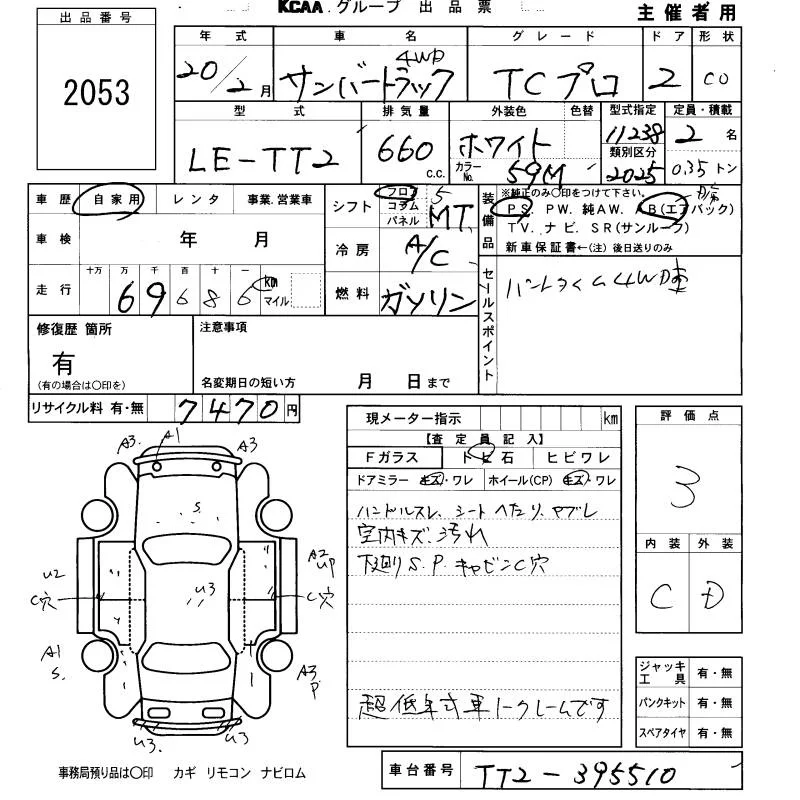 KCAA グループ 出品票
主催者用
出品番号
2053
年式 車名 グレード ドア 形状
20/2月 サンバートラック 4WD TCプロ 2 CO
型式 排気量 外装色 色替 型式指定 定員・積載
LE-TT2 660 c.c. ホワイト カラーNo. 59M 11238 2名
類別区分
2025 0.35トン
車歴 自家用 レンタ 事業.営業車
車検 年 月
走行 十万 万 千 百 十 一
69686 km マイル
シフト フロア コラム パネル 5 MT
冷房 A/C
燃料 ガソリン
装備品 ※純正のみ〇印をつけて下さい。
PS. PW. 純AW. AB(エアバック)
TV. ナビ. SR(サンルーフ)
新車保証書←(注) 後日送りのみ
セールスポイント
パートタイム4WD車
修復歴 箇所
有
(有の場合は〇印を)
注意事項
名変期日の短い方 月 日まで
リサイクル料 有・無 7470円
現メーター指示 km
【査定員記入】
Fガラス トビ石 ヒビワレ
ドアミラー キズ・ワレ ホイール(CP) キズ・ワレ
ハンドルスレ、シートへたり、ヤブレ
室内キズ、汚れ
下廻りS.P.キャビンC穴
超低年式車ノークレームです
評価点
3
内装 外装
C D
ジャッキ工具 有・無
パンクキット 有・無
スペアタイヤ 有・無
A3. A1 A3
S.
U2 C穴 U3 A2 UP C穴
A1 S. A3 P
U3. U3.
事務局預り品は〇印 カギ リモコン ナビロム
車台番号 TT2-395510